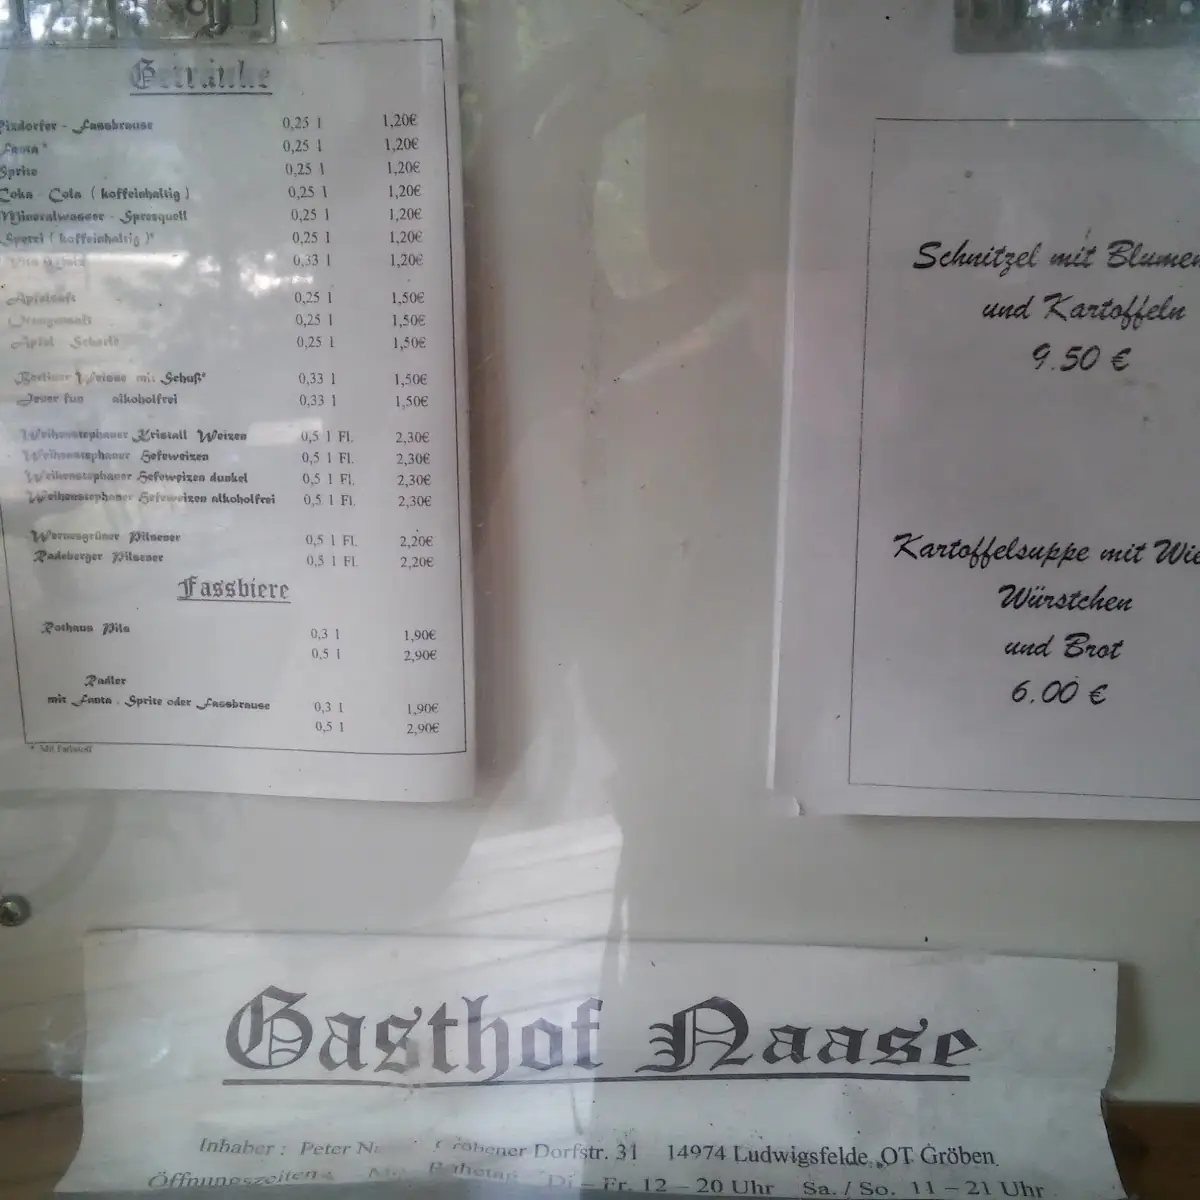 Getränke
Rixdorfer - Fassbrause 0,25 l 1,20€
Fanta* 0,25 l 1,20€
Sprite 0,25 l 1,20€
Coka - Cola ( koffeinhaltig ) 0,25 l 1,20€
Mineralwasser - Spreequell 0,25 l 1,20€
Spezi ( koffeinhaltig )* 0,25 l 1,20€
Vita Malz 0,33 l 1,20€
Apfelsaft 0,25 l 1,50€
Orangensaft 0,25 l 1,50€
Apfel Schorle 0,25 l 1,50€
Berliner Weisse mit Schuß* 0,33 l 1,50€
Jever fun alkoholfrei 0,33 l 1,50€
Weihenstephaner Kristall Weizen 0,5 l Fl. 2,30€
Weihenstephaner Hefeweizen 0,5 l Fl. 2,30€
Weihenstephaner Hefeweizen dunkel 0,5 l Fl. 2,30€
Weihenstephaner Hefeweizen alkoholfrei 0,5 l Fl. 2,30€
Wernesgrüner Pilsener 0,5 l Fl. 2,20€
Radeberger Pilsener 0,5 l Fl. 2,20€
Fassbiere
Rothaus Pils 0,3 l 1,90€
0,5 l 2,90€
Radler
mit Fanta , Sprite oder Fassbrause 0,3 l 1,90€
0,5 l 2,90€
* Mit Farbstoff
Schnitzel mit Blumen
und Kartoffeln
9.50 €
Kartoffelsuppe mit Wie
Würstchen
und Brot
6.00 €
Gasthof Naase
Inhaber : Peter Gröbener Dorfstr. 31 14974 Ludwigsfelde, OT Gröben
Öffnungszeiten Ruhetag Di - Fr. 12 - 20 Uhr Sa. / So. 11 - 21 Uhr